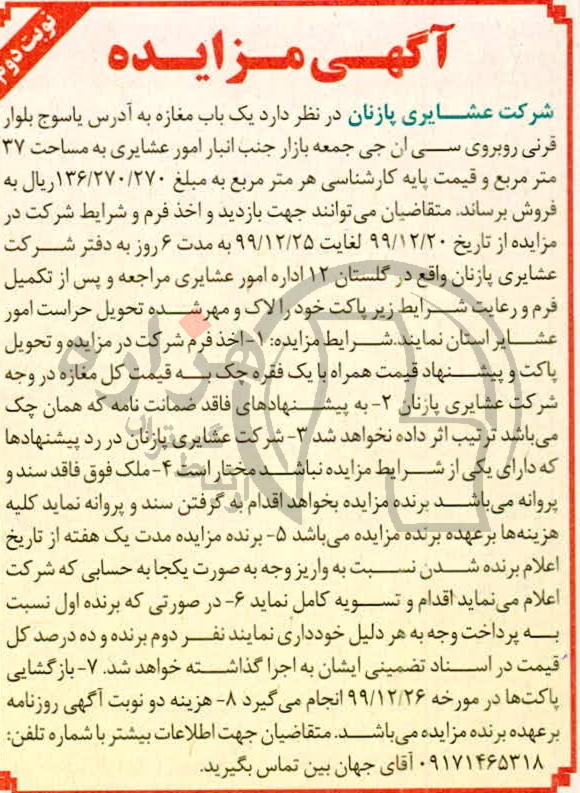 نوبت دوم
آگهی مزایده
شرکت عشایری پازنان در نظر دارد یک باب مغازه به آدرس یاسوج بلوار
قرنی روبروی سی ان جی جمعه بازار جنب انبار امور عشایری به مساحت ۳۷
متر مربع و قیمت پایه کارشناسی هر متر مربع به مبلغ ۱۳۶/۲۷۰/۲۷۰ریال به
فروش برساند. متقاضیان می‌توانند جهت بازدید و اخذ فرم و شرایط شرکت در
مزایده از تاریخ ۹۹/۱۲/۲۰ لغایت ۹۹/۱۲/۲۵ به مدت ۶ روز به دفتر شرکت
عشایری پازنان واقع در گلستان ۱۲ اداره امور عشایری مراجعه و پس از تکمیل
فرم و رعایت شرایط زیر پاکت خود را لاک و مهرشده تحویل حراست امور
عشایر استان نمایند.شرایط مزایده: ۱-اخذ فرم شرکت در مزایده و تحویل
پاکت و پیشنهاد قیمت همراه با یک فقره چک به قیمت کل مغازه در وجه
شرکت عشایری پازنان ۲- به پیشنهادهای فاقد ضمانت نامه که همان چک
می‌باشد ترتیب اثر داده نخواهد شد ۳- شرکت عشایری پازنان در رد پیشنهادها
که دارای یکی از شرایط مزایده نباشد مختار است ۴-ملک فوق فاقد سند و
پروانه می‌باشد برنده مزایده بخواهد اقدام به گرفتن سند و پروانه نماید کلیه
هزینه‌ها برعهده برنده مزایده می‌باشد ۵- برنده مزایده مدت یک هفته از تاریخ
اعلام برنده شدن نسبت به واریز وجه به صورت یکجا به حسابی که شرکت
اعلام می‌نماید اقدام و تسویه کامل نماید ۶- در صورتی که برنده اول نسبت
به پرداخت وجه به هر دلیل خودداری نمایند نفر دوم برنده و ده درصد کل
قیمت در اسناد تضمینی ایشان به اجرا گذاشته خواهد شد. ۷- بازگشایی
پاکت‌ها در مورخه ۹۹/۱۲/۲۶ انجام می‌گیرد ۸- هزینه دو نوبت آگهی روزنامه
برعهده برنده مزایده می‌باشد. متقاضیان جهت اطلاعات بیشتر با شماره تلفن:
۰۹۱۷۱۴۶۵۳۱۸ آقای جهان بین تماس بگیرید.
هزاره